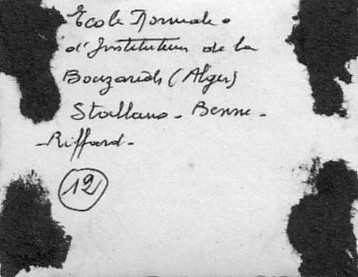 Ecole Normale
d'Instituteurs de la
Bouzaréah (Alger)
Stollano - Benne -
- Riffard -
12